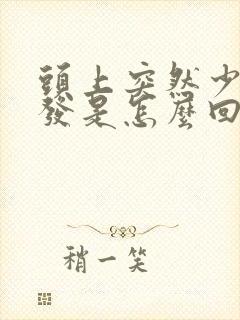 頭上突然少
發是怎麼回
稍一笑